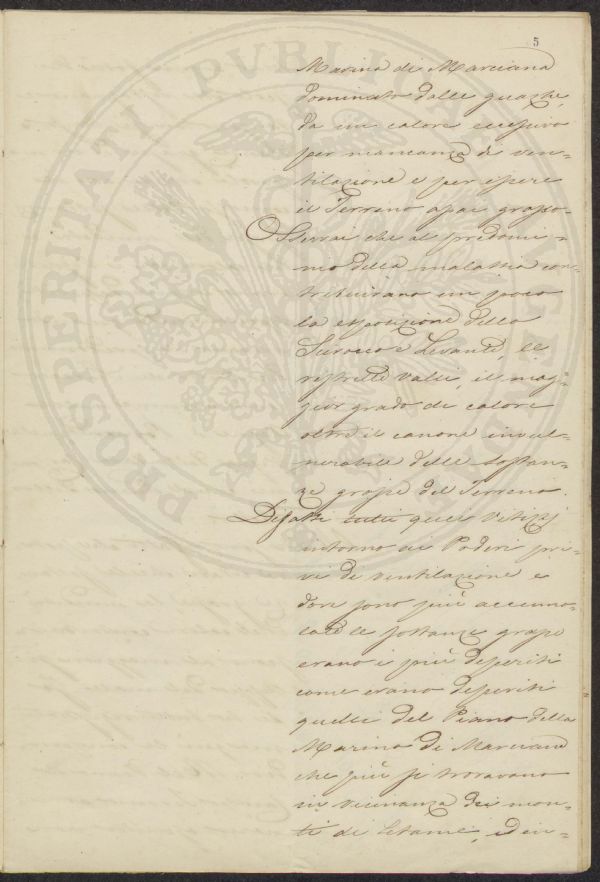 5
Marina di Marciana
dominato dalle guaste,
da un calore eccessivo
per mancanza di ven=
tilazione e per essere
il Terreno assai grasso.
Osservai che al predomi=
nio della malattia con=
tribuivano un poco
la esposizione dello
Scirocco e Levante, le
ristrette valli, il mag=
gior grado di calore
oltre il canone invul=
nerabile delle sostan=
ze grasse del Terreno.
Difatti tutti quei Vitizzi
intorno ai Poderi pri=
vi di ventilazione e
dove sono più accumu=
late le sostanze grasse
erano i più desperiti
come erano desperiti
quelli del Piano della
Marina di Marciana
che più si trovavano
in vicinanza dei mon=
ti di letame, e din=
PROSPERITATI PVBLICAE